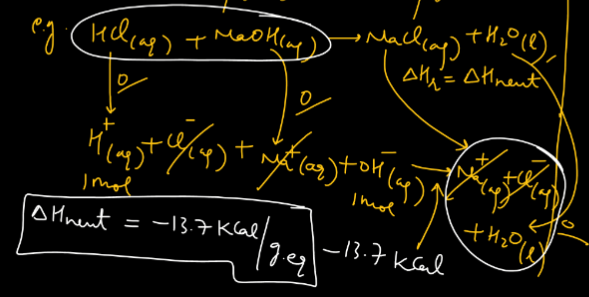 e.g. HCl(aq) + NaOH(aq) → NaCl(aq) + H2O(l)
ΔHr = ΔHneut
0
0
H+(aq) + Cl-(aq) + Na+(aq) + OH-(aq) → Na+(aq) + Cl-(aq)
1mol 1mol + H2O(l) 0
ΔHneut = -13.7 KCal/g.eq -13.7 KCal